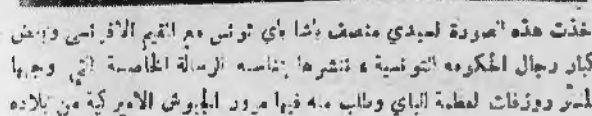 خذت هذه الصورة لسيدي منصف باشا باي تونس مع المقيم الافرنسي وبعض
كبار رجال الحكومه التونسية ، ننشرها بمناسبة الرسالة الخاصة التي وجهها
المستر روزفلت لعظمة الباي وطلب منه فيها مرور الجيوش الاميركية من بلاده